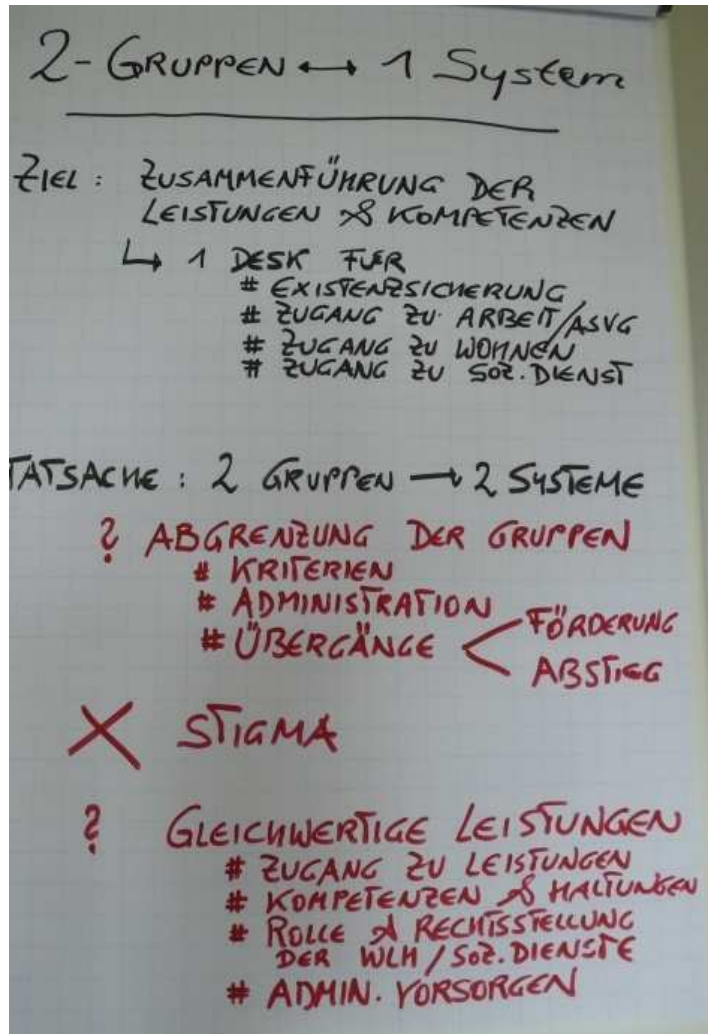 2-GRUPPEN ↔ 1 System
ZIEL: ZUSAMMENFÜHRUNG DER
LEISTUNGEN & KOMPETENZEN
↳ 1 DESK FUER
# EXISTENZSICHERUNG
# ZUGANG ZU ARBEIT/ASVG
# ZUGANG ZU WOHNEN
# ZUGANG ZU SOZ. DIENST
TATSACHE: 2 GRUPPEN → 2 SYSTEME
? ABGRENZUNG DER GRUPPEN
# KRITERIEN
# ADMINISTRATION
# ÜBERGÄNGE < FÖRDERUNG
ABSTIEG
X STIGMA
? GLEICHWERTIGE LEISTUNGEN
# ZUGANG ZU LEISTUNGEN
# KOMPETENZEN & HALTUNGEN
# ROLLE & RECHTSSTELLUNG
DER WLH / SOZ. DIENSTE
# ADMIN. VORSORGEN